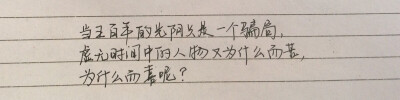 当五百年的光阴只是一个骗局,
虚无时间中的人物又为什么而苦,
为什么而喜呢?